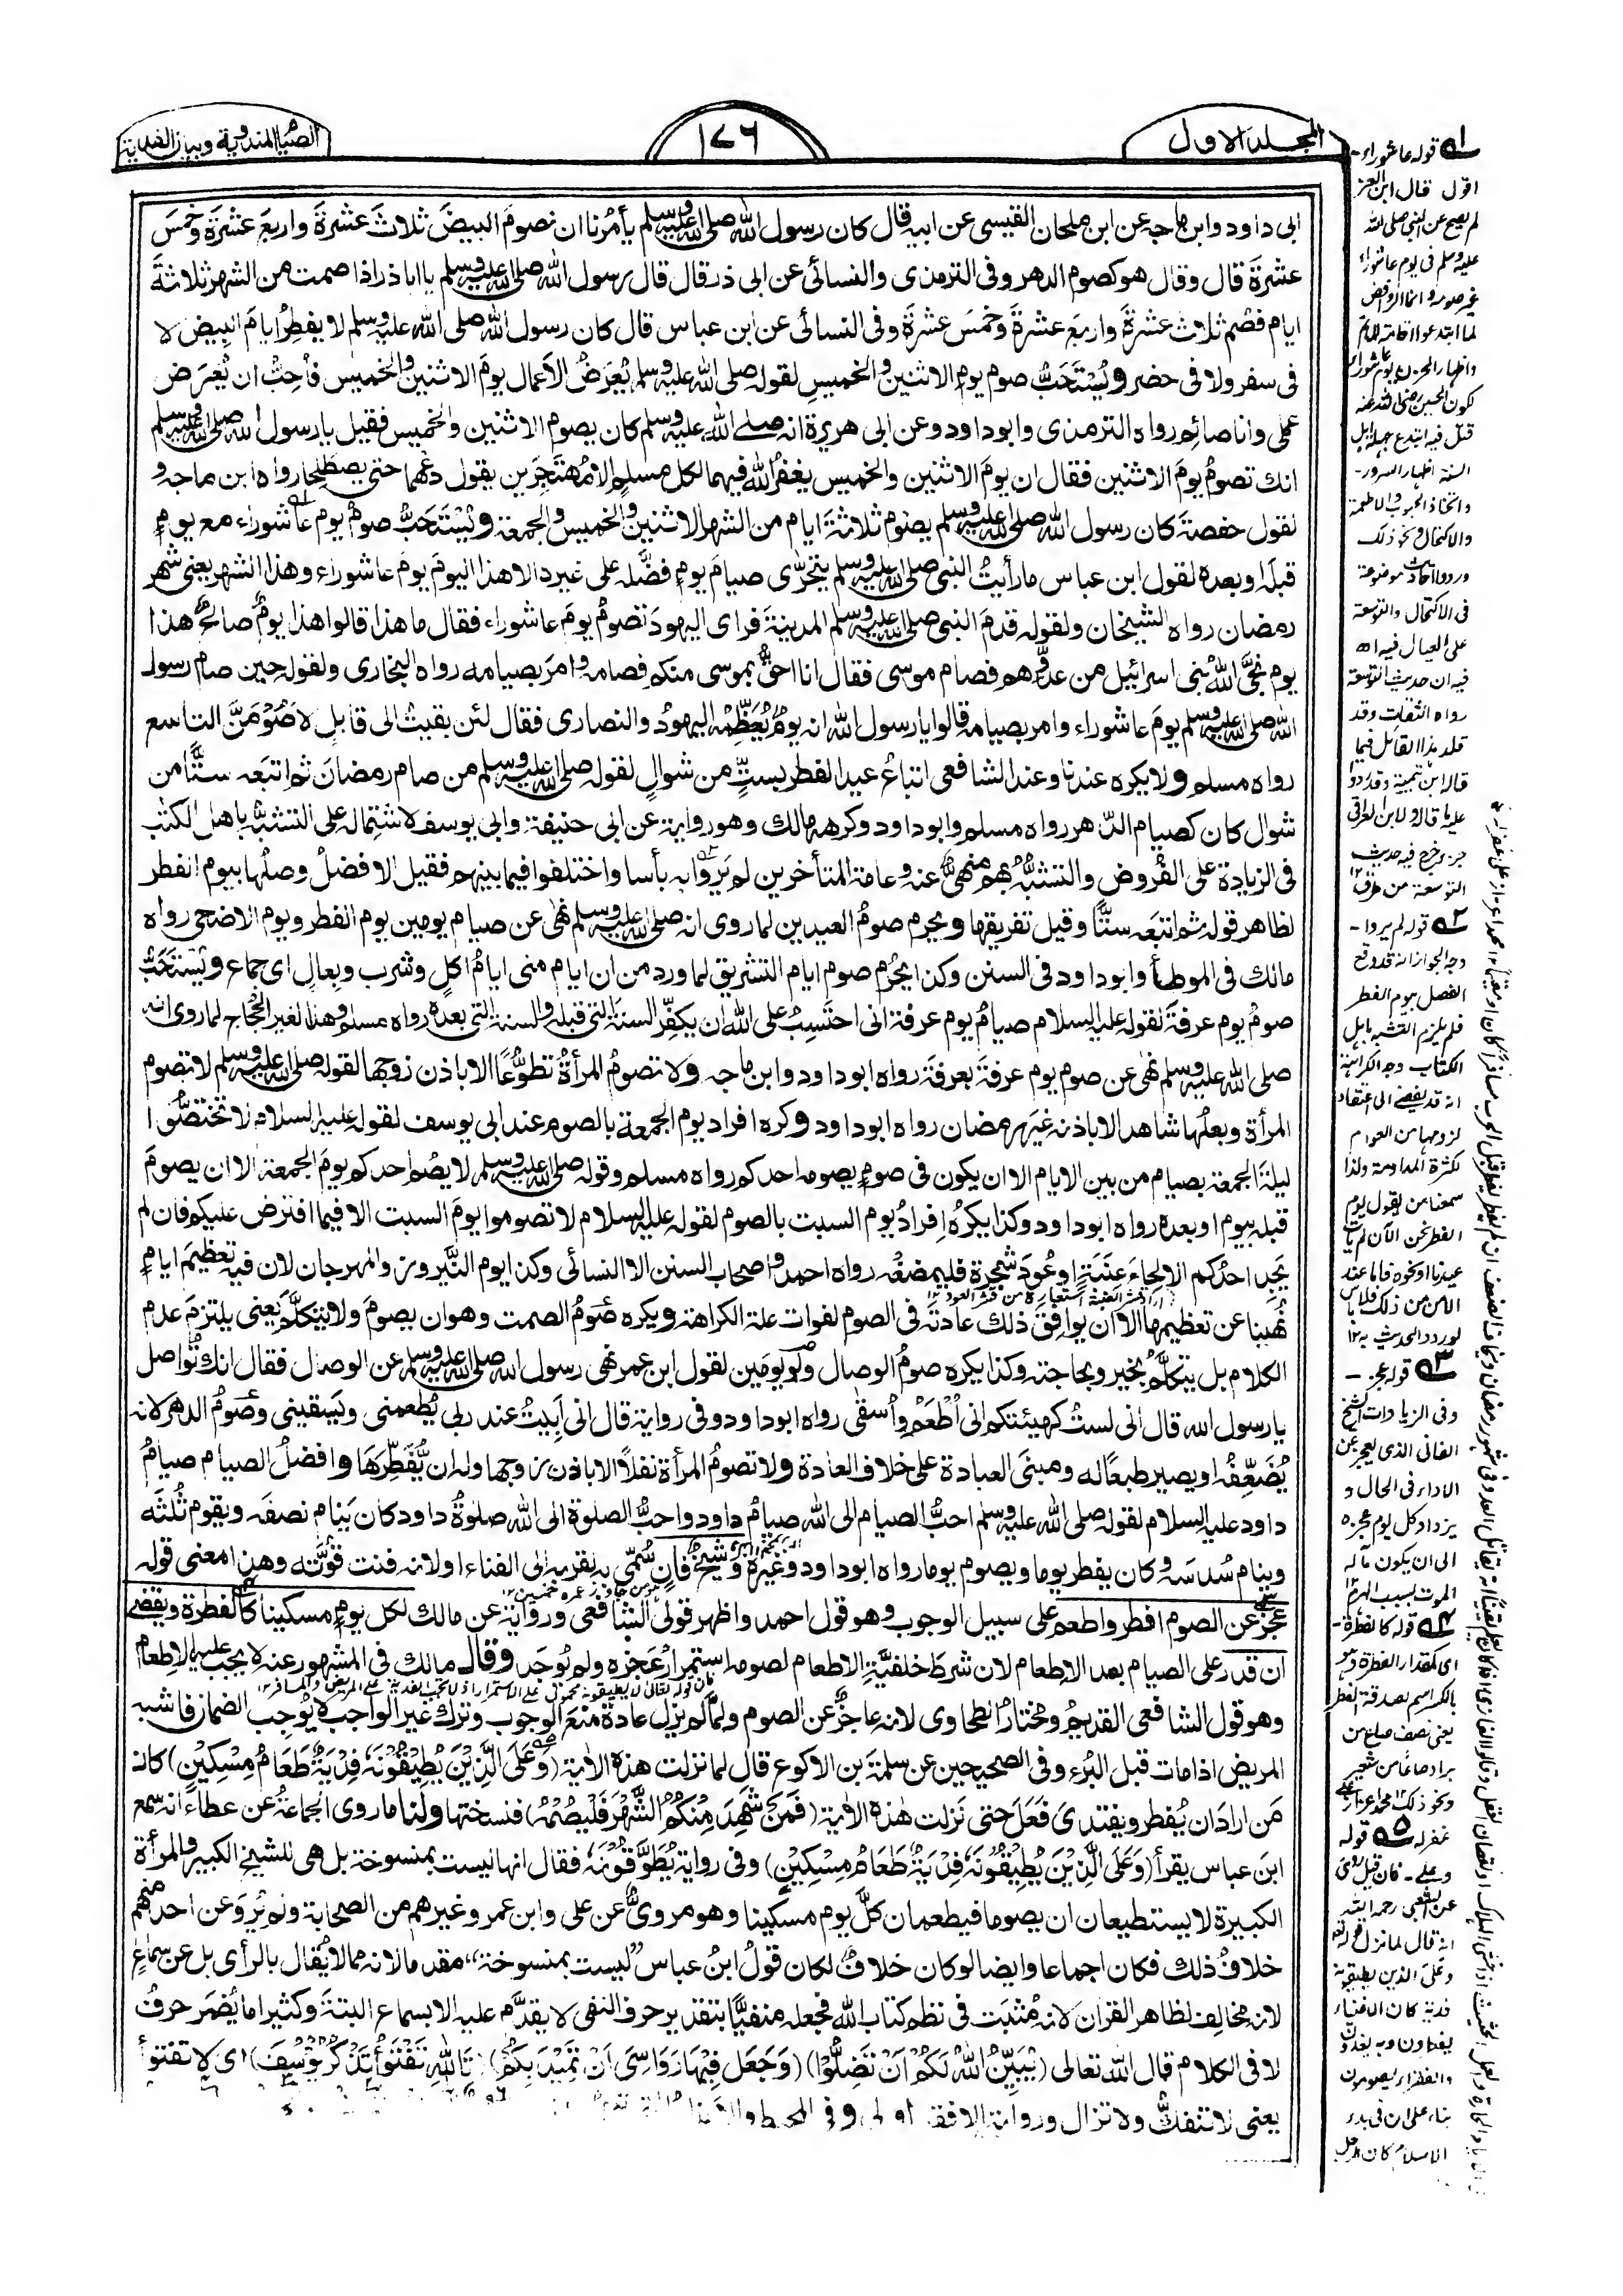 المجلد الاول
١٧٦
الصيام المندوبة وبيان الفدية
ابى داود وابن ماجه عن ابن ملحان القيسى عن ابيه قال كان رسول الله صلى الله عليه وسلم يأمُرُنا ان نصومَ البيضَ ثلاثَ عشرةَ واربعَ عشرةَ وخمسَ
عشرةَ قال وقال هو كصوم الدهر وفى الترمذى والنسائى عن ابى ذر قال قال رسول الله صلى الله عليه وسلم يا ابا ذر اذا صمت من الشهر ثلاثةَ
ايام فصُم ثلاث عشرةَ واربعَ عشرةَ وخمسَ عشرةَ وفى النسائى عن ابن عباس قال كان رسول الله صلى الله عليه وسلم لا يفطِرُ ايامَ البيض لا
فى سفر ولا فى حضر ويُستَحَبُّ صوم يومِ الاثنين والخميسِ لقوله صلى الله عليه وسلم تُعرَضُ الاعمال يومَ الاثنين والخميس فأُحِبُّ ان يُعرَض
عملى وانا صائم رواه الترمذى وابوداود وعن ابى هريرة انه صلى الله عليه وسلم كان يصوم الاثنين والخميس فقيل يا رسول الله صلى الله عليه وسلم
انك تصومُ يومَ الاثنين فقال ان يومَ الاثنين والخميس يغفرُ الله فيهما لكل مسلم الا مُهتَجِرَين يقول دَعْهما حتى يصطلحا رواه ابن ماجه و
لقول حفصة كان رسول الله صلى الله عليه وسلم يصوم ثلاثةَ ايام من الشهر الاثنين والخميس والجمعة ويُستَحَبُّ صومُ يوم عاشوراء مع يومٍ
قبلَه او بعده لقول ابن عباس ما رأيتُ النبى صلى الله عليه وسلم يتحرّى صيامَ يومٍ فضَّله على غيره الا هذا اليومَ يومَ عاشوراء وهذا الشهرَ يعنى شهر
رمضان رواه الشيخان ولقوله قدمَ النبى صلى الله عليه وسلم المدينةَ فرأى اليهودَ تصومُ يومَ عاشوراء فقال ما هذا قالوا هذا يومٌ صالحٌ هذا
يوم نجَّى اللهُ بنى اسرائيل من عدوّهم فصام موسى فقال انا احقُّ بموسى منكم فصامه وامر بصيامه رواه البخارى ولقوله حين صام رسول
الله صلى الله عليه وسلم يومَ عاشوراء وامر بصيامه قالوا يا رسول الله انه يومٌ يُعَظِّمه اليهودُ والنصارى فقال لئن بقيتُ الى قابلٍ لاصُوْمَنَّ التاسع
رواه مسلم ولا يكره عندنا وعند الشافعى اتباعُ عيد الفطر بستٍّ من شوالٍ لقوله صلى الله عليه وسلم من صام رمضانَ ثم اتبَعَه ستًّا من
شوال كان كصيام الدّهر رواه مسلم وابوداود وكرهه مالك وهو رواية عن ابى حنيفة وابى يوسف لاشتماله على التشبُّه باهل الكتب
فى الزيادة على الفروض والتشبُّهُ بهم منهىٌّ عنه وعامة المتأخرين لم يَرَوا به بأسا واختلفوا فيما بينهم فقيل الافضلُ وصلُها بيوم الفطر
لظاهر قوله ثم اتبَعه ستًّا وقيل تفريقها ويحرم صومُ العيدين لما روى انه صلى الله عليه وسلم نهى عن صيام يومين يوم الفطر ويوم الاضحى رواه
مالك فى الموطأ وابوداود فى السنن وكذا يحرُم صوم ايام التشريق لما ورد من ان ايام منى ايامُ اكلٍ وشرب وبعالٍ اى جماع ويُستَحَبُّ
صومُ يوم عرفة لقوله عليه السلام صيامُ يوم عرفة انى احتسِبُ على الله ان يكفّر السنة التى قبله والسنة التى بعده رواه مسلم وهذا لغير الحُجاج لما روى انه
صلى الله عليه وسلم نهى عن صوم يوم عرفةَ بعرفةَ رواه ابوداود وابن ماجه ولا تصومُ المرأةُ تطوُّعًا الا باذن زوجها لقوله صلى الله عليه وسلم لا تصوم
المرأة وبعلُها شاهد الا باذنه غيرَ رمضان رواه ابوداود وكره افراد يوم الجمعة بالصوم عند ابى يوسف لقوله عليه السلام لا تختصُّوا
ليلةَ الجمعة بصيام من بين الايام الا ان يكون فى صومٍ يصومه احدكم رواه مسلم وقوله صلى الله عليه وسلم لا يصُم احدكم يومَ الجمعة الا ان يصومَ
قبله بيوم او بعده رواه ابوداود وكذا يكرهُ افرادُ يوم السبت بالصوم لقوله عليه السلام لا تصوموا يومَ السبت الا فيما افترض عليكم فان لم
يَجِد احدُكم الا لِحاءَ عِنَبَةٍ او عُودَ شجرة فليمضغه رواه احمد واصحاب السنن الا النسائى وكذا يوم النَّيروز والمهرجان لان فيه تعظيمَ ايامٍ
نُهينا عن تعظيمها الا ان يوافِقَ ذلك عادتَه فى الصوم لفوات علة الكراهة ويكره صومُ الصمت وهو ان يصومَ ولا يتكلَّمَ يعنى يلتزمَ عدم
الكلام بل يتكلَّمُ بخير وبحاجته وكذا يكره صومُ الوصال ولو يومَين لقول ابن عمر نهى رسول الله صلى الله عليه وسلم عن الوصال فقال انك تُواصل
يا رسول الله قال انى لستُ كهيئتكم انى أُطعَمُ واُسقى رواه ابوداود وفى رواية قال انى اَبِيتُ عند ربى يُطعمنى ويسقينى وصومُ الدهر لانه
يُضَعِّفُه او يصير طبعًا له ومبنَى العبادة على خلاف العادة ولا تصومُ المرأة نفلًا الا باذن زوجها وله ان يُفَطِّرَها وافضلُ الصيام صيامُ
داود عليه السلام لقوله صلى الله عليه وسلم احبُّ الصيام الى الله صيامُ داود واحبُّ الصلوة الى الله صلوةُ داود كان يَنام نصفَه ويقوم ثُلثَه
وينام سُدسَه وكان يفطر يوما ويصوم يوما رواه ابوداود وغيره وشيخٌ فانٍ سُمّى به لقربه الى الفناء او لانه فنت قوّتُه وهذا معنى قوله
عجَزَ عن الصوم افطر واطعم على سبيل الوجوب وهو قول احمد واظهر قولى الشافعى ورواية عن مالك لكل يومٍ مسكينا كالفطرة ويقضى
ان قدر على الصيام بعد الاطعام لان شرطَ خلفيَّةِ الاطعام لصومه استمرارُ عجزه ولم توجَد وقال مالك فى المشهور عنه لا يجب عليه الاطعام
وهو قول الشافعى القديمُ ومختارُ الطحاوى لانه عاجزٌ عن الصوم ولمّا لم يَزُل عادة منَعَ الوجوب وترك غير الواجب لا يُوجِب الضمان فاشبه
المريض اذا مات قبل البُرء وفى الصحيحين عن سلمةَ بن الاكوع قال لما نزلت هذه الاية (وَعَلَى الَّذِيْنَ يُطِيْقُوْنَهٗ فِدْيَةٌ طَعَامُ مِسْكِيْنٍ) كان
مَن ارادَ ان يُفطرو يفتدى فَعَلَ حتى نَزلت هذه الاية (فَمَنْ شَهِدَ مِنْكُمُ الشَّهْرَ فَلْيَصُمْهُ) فنسختها ولنا ما روى الجماعةُ عن عطاء انه سمع
ابنَ عباس يقرأ (وَعَلَى الَّذِيْنَ يُطِيْقُوْنَهٗ فِدْيَةٌ طَعَامُ مِسْكِيْنٍ) وفى رواية يُطَوَّقُوْنَهٗ فقال انها ليست بمنسوخة بل هى للشيخ الكبير والمرأة
الكبيرة لا يستطيعان ان يصوما فيطعمان كلَّ يوم مسكينا وهو مروىٌّ عن على وابن عمر وغيرهم من الصحابة ولم يُروَ عن احد منهم
خلافُ ذلك فكان اجماعا وايضا لو كان خلافٌ لكان قولُ ابنُ عباس "ليست بمنسوخة" مقدما لانه مما لا يُقال بالرأى بل عن سماعٍ
لانه مخالف لظاهر القران لانه مُثبَت فى نظم كتاب الله فجعله منفيًّا بتقدير حرف النفى لا يقدَّم عليه الا بسماع البتة وكثيرا ما يُضمر حرفُ
لا فى الكلام قال الله تعالى (يُبَيِّنُ اللّٰهُ لَكُمْ اَنْ تَضِلُّوْا) (وَجَعَلَ فِيْهَا رَوَاسِىَ اَنْ تَمِيْدَ بِكُمْ) (تَاللّٰهِ تَفْتَؤُا تَذْكُرُ يُوْسُفَ) اى لا تفتؤا
يعنى لا تنفكُّ ولا تزال ورواية الافقه اولى وفى المحيط
ـ١ـ قوله عاشوراء -
اقول قال ابن العز
لم يصح عن النبى صلى الله
عليه وسلم فى يوم عاشوراء
غير صومه وانما الروافض
لما ابتدعوا اقامة المأتم
واظهار الحزن يوم عاشوراء
لكون الحسين رضى الله عنه
قتل فيه ابتدع جهلة اهل
السنة اظهار السرور -
واتخاذ الحبوب والاطعمة
والاكتحال ونحو ذلك
ورووا احاديث موضوعة
فى الاكتحال والتوسعة
على العيال فيه اه
فيه ان حديث التوسعة
رواه الثقات وقد
قلد هذا القائل فيما
قاله ابن تيمية وقد رد
عليه ما قاله ولابن العراقى
جزء خرج فيه حديث
التوسعة من طرق ١٢
ـ٢ـ قوله لم يروا -
وجه الجواز انه قد وقع
الفصل بيوم الفطر
فلم يلزم التشبه باهل
الكتاب وجه الكراهة
انه قد يفضى الى اعتقاد
لزومها من العوام
لكثرة المداومة ولذا
سمعنا من يقول يوم
الفطر نحن الآن لم يأت
عيدنا او نحوه فاما عند
الامن من ذلك فلا بأس
لورود الحديث به ١٢
ـ٣ـ قوله عجز -
وفى الزيادات الشيخ
الفانى الذى يعجز عن
الاداء فى الحال و
يزداد كل يوم عجزه
الى ان يكون مآله
الموت بسبب الهرم ١٢
ـ٤ـ قوله كالفطرة -
اى كمقدار الفطرة وهو
بالكسر اسم لصدقة الفطر
يعنى نصف صاع من
بر او صاعا من شعير
ونحو ذلك ١٢ محمد اعزاز على
غفرله ـ٥ـ قوله
وعلى - فان قيل روى
عن الشعبى رحمه الله
انه قال لما نزل قوله تعالى
وعلى الذين يطيقونه
فدية كان الاغنياء
يفطرون ويفدون
والفقراء يصومون
بناء على ان فى بدء
الاسلام كان الرجل